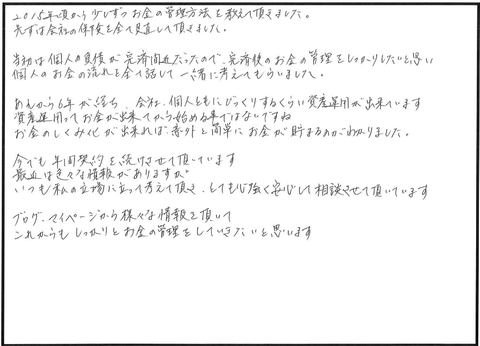 2015年頃から少しずつお金の管理方法を教えて頂きました。
先ずは会社の保険を全て見直して頂きました。
当初は個人の負債が完済間近だったので、完済後のお金の管理をしっかりしたいと思い
個人のお金の流れを全て話して一緒に考えてもらいました。
あれから6年が経ち、会社、個人ともにびっくりするくらい資産運用が出来ています
資産運用ってお金が出来てから始める事ではないですね
お金のしくみ化が出来れば意外と簡単にお金が貯まるのがわかりました。
今でも年間契約を続けさせて頂いています
最近は色々な情報がありますが
いつも私の立場に立って考えて頂き、とても心強く安心して相談させて頂いています
ブログ、マイページから様々な情報を頂いて
これからもしっかりとお金の管理をしていきたいと思います